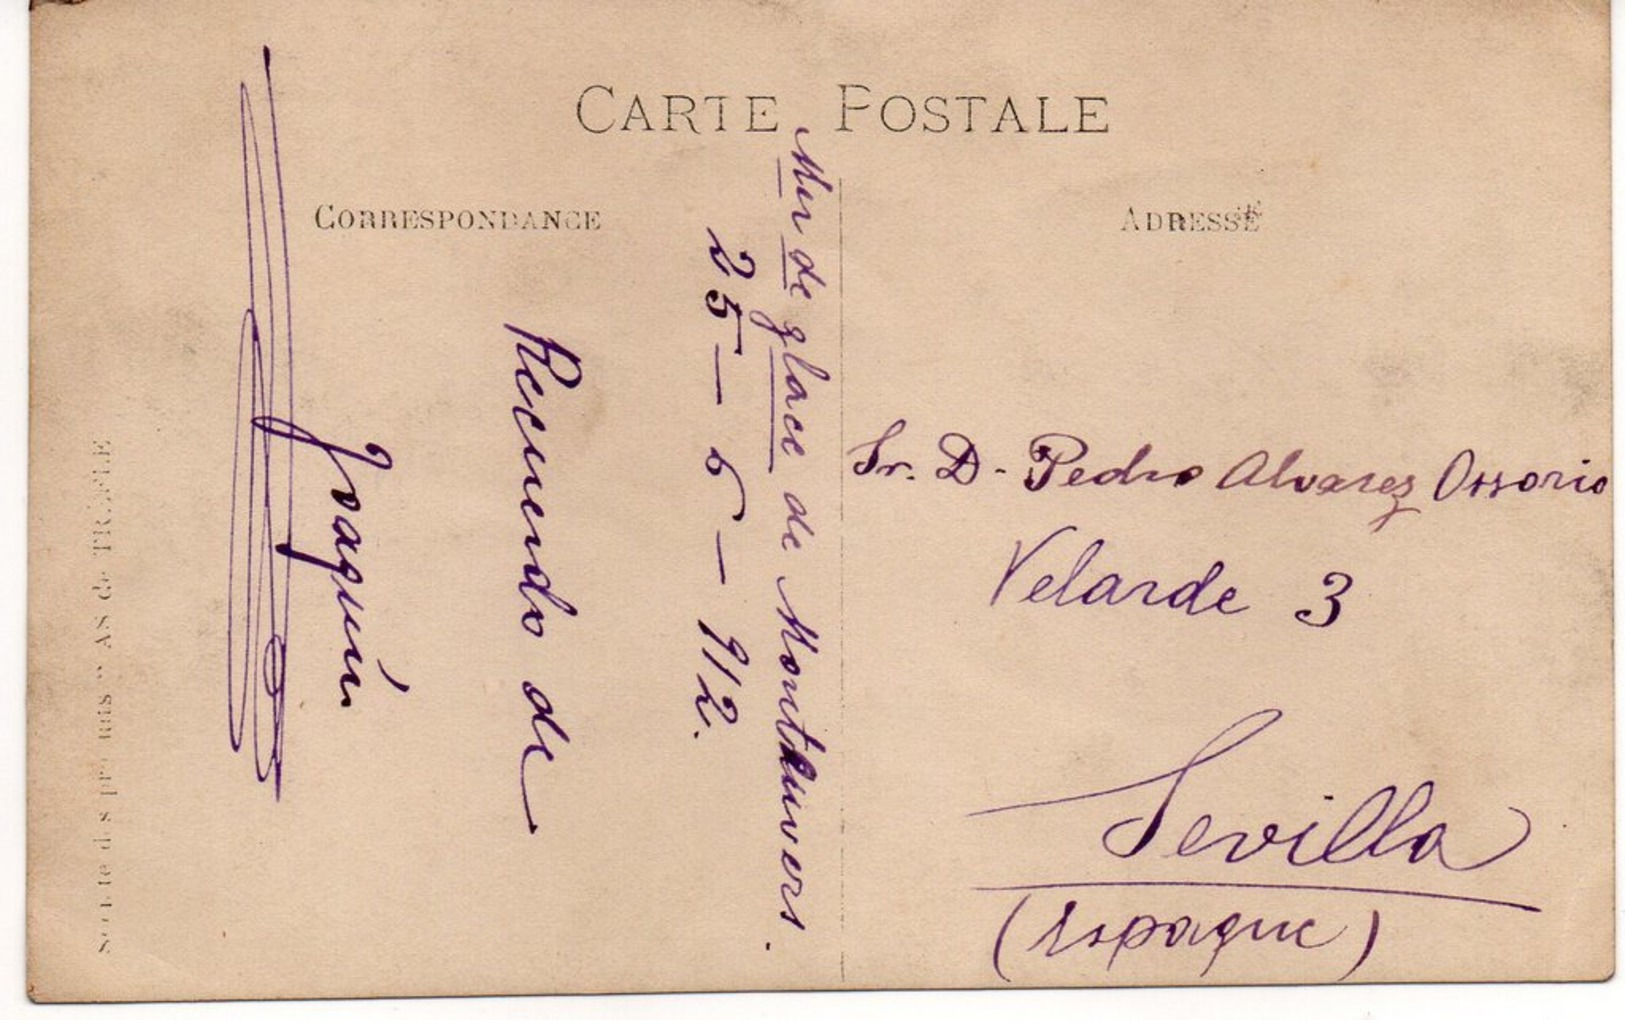 CARTE POSTALE
CORRESPONDANCE
ADRESSE
Mer de glace de Montauvers.
25-6-912.
Recuerdo de
Joaquín
Sr. D- Pedro Alvarez Ossorio
Velarde 3
Sevilla
(Espagne)
AS de TRÈFLE